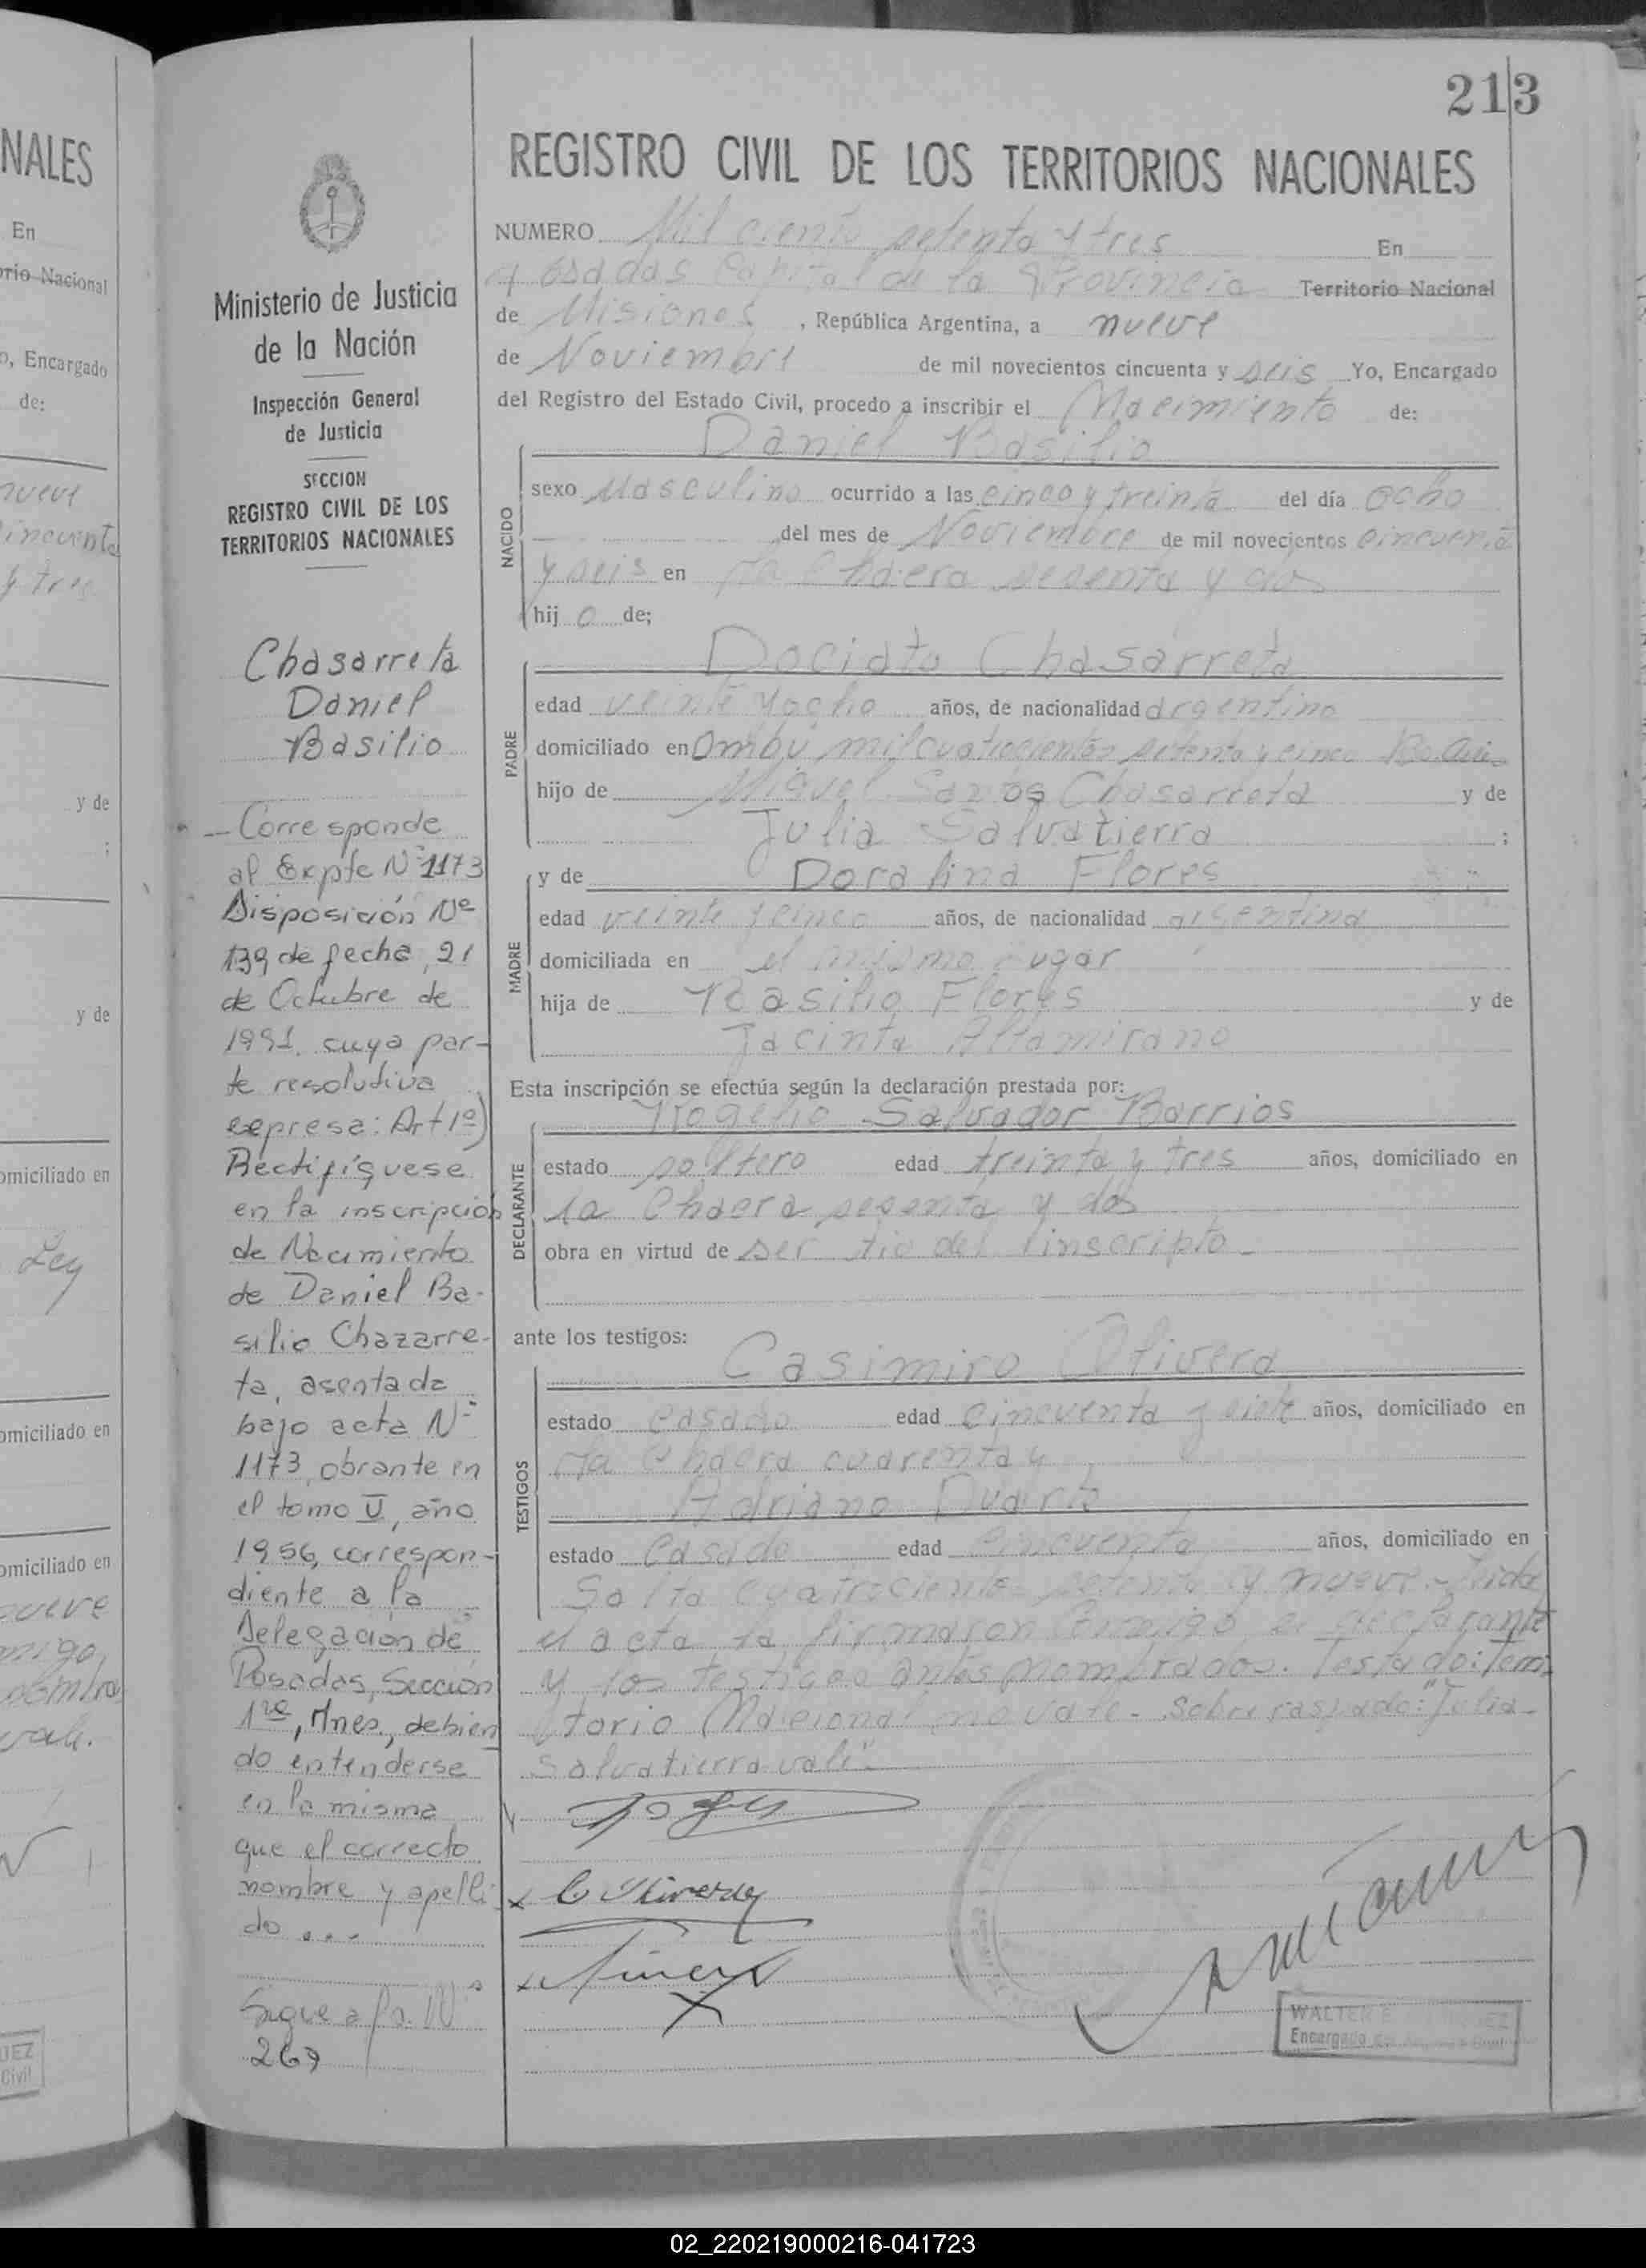 NALES
En
orio Nacional
o, Encargado
de:
nueve
cincuenta
y tres
y de
;
y de
omiciliado en
Ley
omiciliado en
omiciliado en
nueve
vale.
UEZ
Civil
213
Ministerio de Justicia
de la Nación
Inspección General
de Justicia
SECCION
REGISTRO CIVIL DE LOS
TERRITORIOS NACIONALES
Chasarreta
Daniel
Basilio
- Corresponde
al Expte Nº 1173
Disposición Nº
139 de fecha, 21
de Octubre de
1991, cuya par-
te resolutiva
expresa: Art 1º)
Rectifíquese
en la inscripción
de Nacimiento
de Daniel Ba-
silio Chazarre-
ta, asentada
bajo acta Nº
1173, obrante en
el tomo V, año
1956, correspon-
diente a la
Delegación de
Posadas, Sección
1ra, Mnes., debien
do entenderse
en la misma
que el correcto
nombre y apelli-
do ...
Sigue a fo. Nº
267
REGISTRO CIVIL DE LOS TERRITORIOS NACIONALES
NUMERO Mil ciento setenta y tres En
Posadas Capital de la Provincia Territorio Nacional
de Misiones, República Argentina, a nueve
de Noviembre de mil novecientos cincuenta y seis Yo, Encargado
del Registro del Estado Civil, procedo a inscribir el Nacimiento de:
NACIDO
Daniel Basilio
sexo Masculino ocurrido a las cinco y treinta del día ocho
del mes de Noviembre de mil novecientos cincuenta
y seis en la Chacra sesenta y dos
hijo de;
PADRE
Dociato Chasarreta
edad veinte y ocho años, de nacionalidad argentino
domiciliado en Ombú mil cuatrocientos setenta y cinco
hijo de Miguel Santos Chasarreta y de
Julia Salvatierra ;
MADRE
y de Doralina Flores
edad veinte y cinco años, de nacionalidad argentina
domiciliada en el mismo lugar
hija de Basilio Flores y de
Jacinta Altamirano
Esta inscripción se efectúa según la declaración prestada por:
DECLARANTE
Rogelio Salvador Barrios
estado soltero edad treinta y tres años, domiciliado en
la Chacra sesenta y dos
obra en virtud de ser tio del inscripto
ante los testigos:
TESTIGOS
Casimiro Olivera
estado casado edad cincuenta y siete años, domiciliado en
la Chacra cuarenta y
Adriano Duarte
estado casado edad cincuenta años, domiciliado en
Salta cuatrocientos setenta y nueve - Leida
el acta la firmaron conmigo el declarante
y los testigos antes nombrados. Testado: Terri
torio Nacional no vale - Sobre raspado: "Julia
Salvatierra vale"
C Olivera
WALTER E
Encargado del Registro Civil
02_220219000216-041723